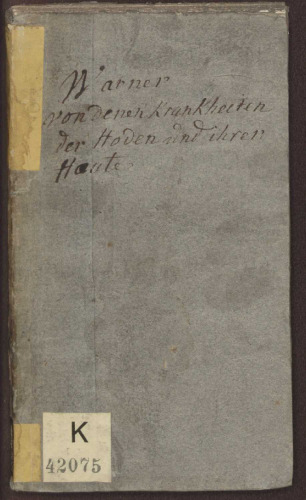 Warner
von denen Krankheiten
der Hoden und ihrer
Häute.
K
42075